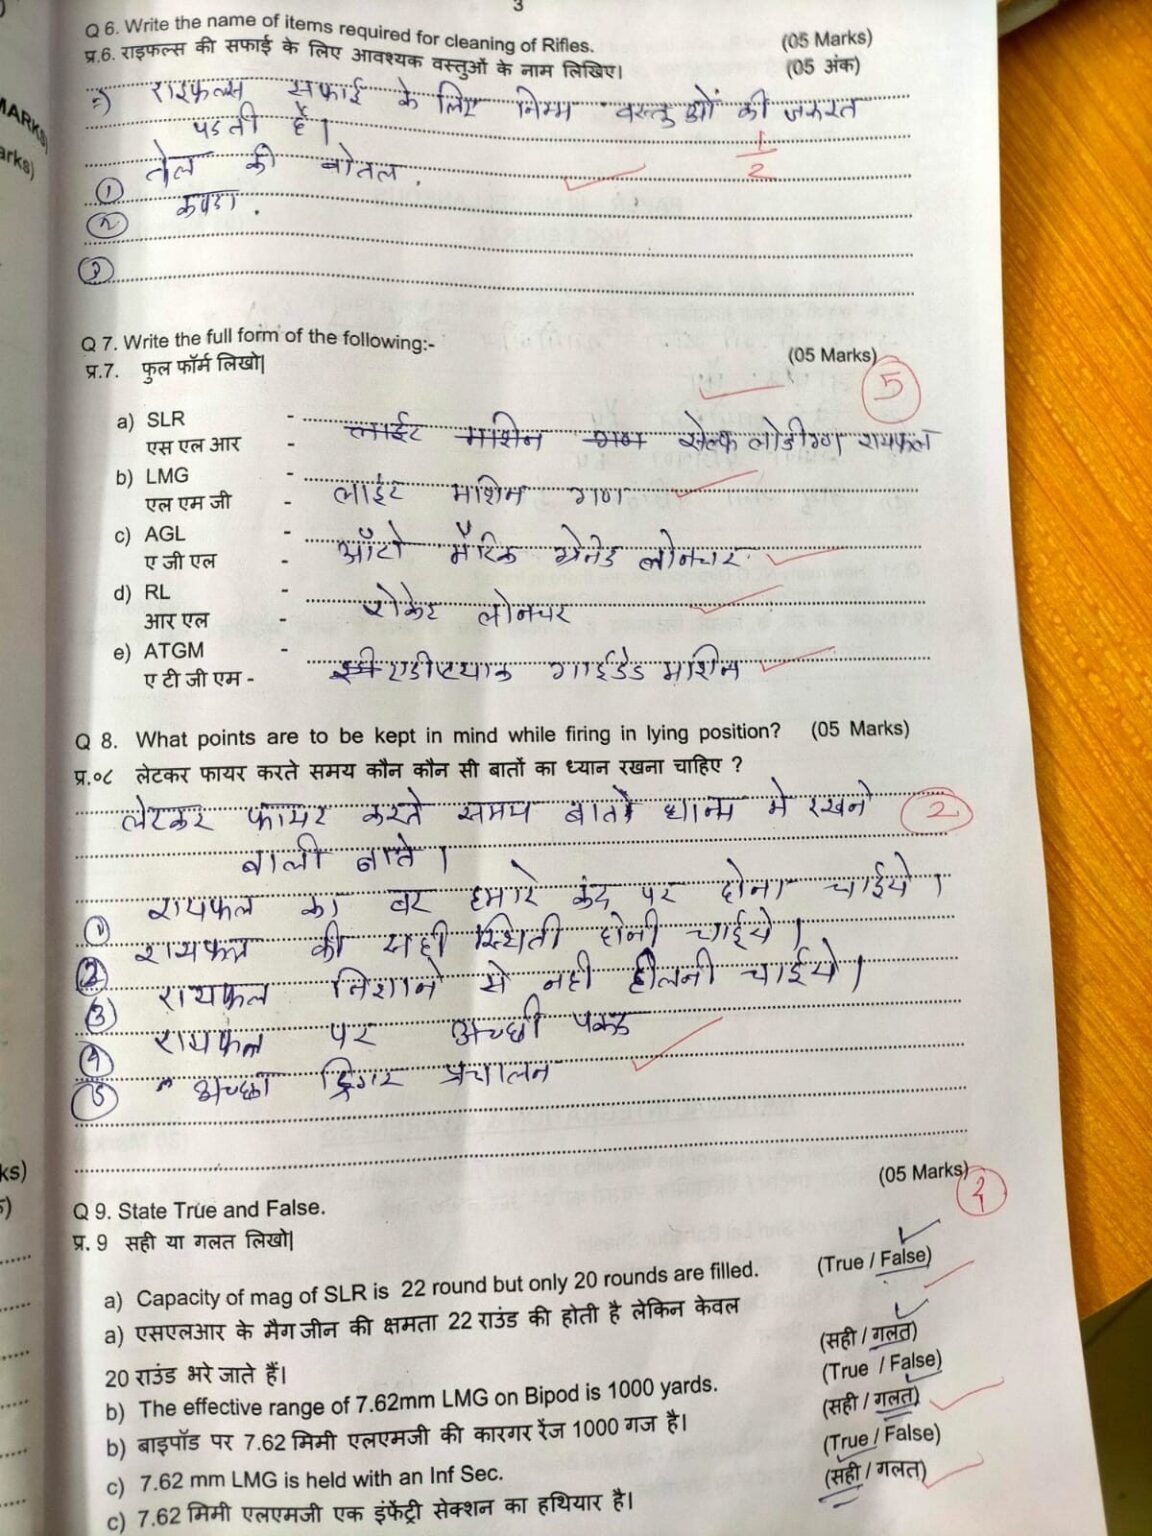 3
Q 6. Write the name of items required for cleaning of Rifles. (05 Marks)
प्र.6. राइफल्स की सफाई के लिए आवश्यक वस्तुओं के नाम लिखिए। (05 अंक)
राइफल्स सफाई के लिए निम्म वस्तुओं की जरुरत
पडती है।
1/2
① तेल की बोतल.
② कपडा.
③
Q 7. Write the full form of the following:- (05 Marks)
प्र.7. फुल फॉर्म लिखो| 5
a) SLR - लाईट मशिन गण सेल्फ लोडींग रायफल
एस एल आर -
b) LMG - लाईट मशिन गण
एल एम जी -
c) AGL - ऑटो मैटिक ग्रेनेड लोनचर
ए जी एल -
d) RL - रोकेट लोनचर
आर एल -
e) ATGM - गाईडेड मशिन
ए टी जी एम -
Q 8. What points are to be kept in mind while firing in lying position? (05 Marks)
प्र.०८ लेटकर फायर करते समय कौन कौन सी बातों का ध्यान रखना चाहिए ?
लेटकर फायर करते समय बातो ध्यान मे रखने 2
वाली बाते।
① रायफल का बट हमारे कंद पर होना चाईये।
② रायफल की सही स्थिती होनी चाईये।
③ रायफल निशाने से नही हीलनी चाईये।
④ रायफल पर अच्छी पकड
⑤ अच्छा ट्रिगर प्रचालन
(05 Marks)
Q 9. State True and False.
प्र. 9 सही या गलत लिखो|
a) Capacity of mag of SLR is 22 round but only 20 rounds are filled. (True / False)
a) एसएलआर के मैगजीन की क्षमता 22 राउंड की होती है लेकिन केवल
20 राउंड भरे जाते हैं। (सही / गलत)
b) The effective range of 7.62mm LMG on Bipod is 1000 yards. (True / False)
b) बाइपॉड पर 7.62 मिमी एलएमजी की कारगर रेंज 1000 गज है। (सही / गलत)
c) 7.62 mm LMG is held with an Inf Sec. (True / False)
c) 7.62 मिमी एलएमजी एक इंफेंट्री सेक्शन का हथियार है। (सही / गलत)